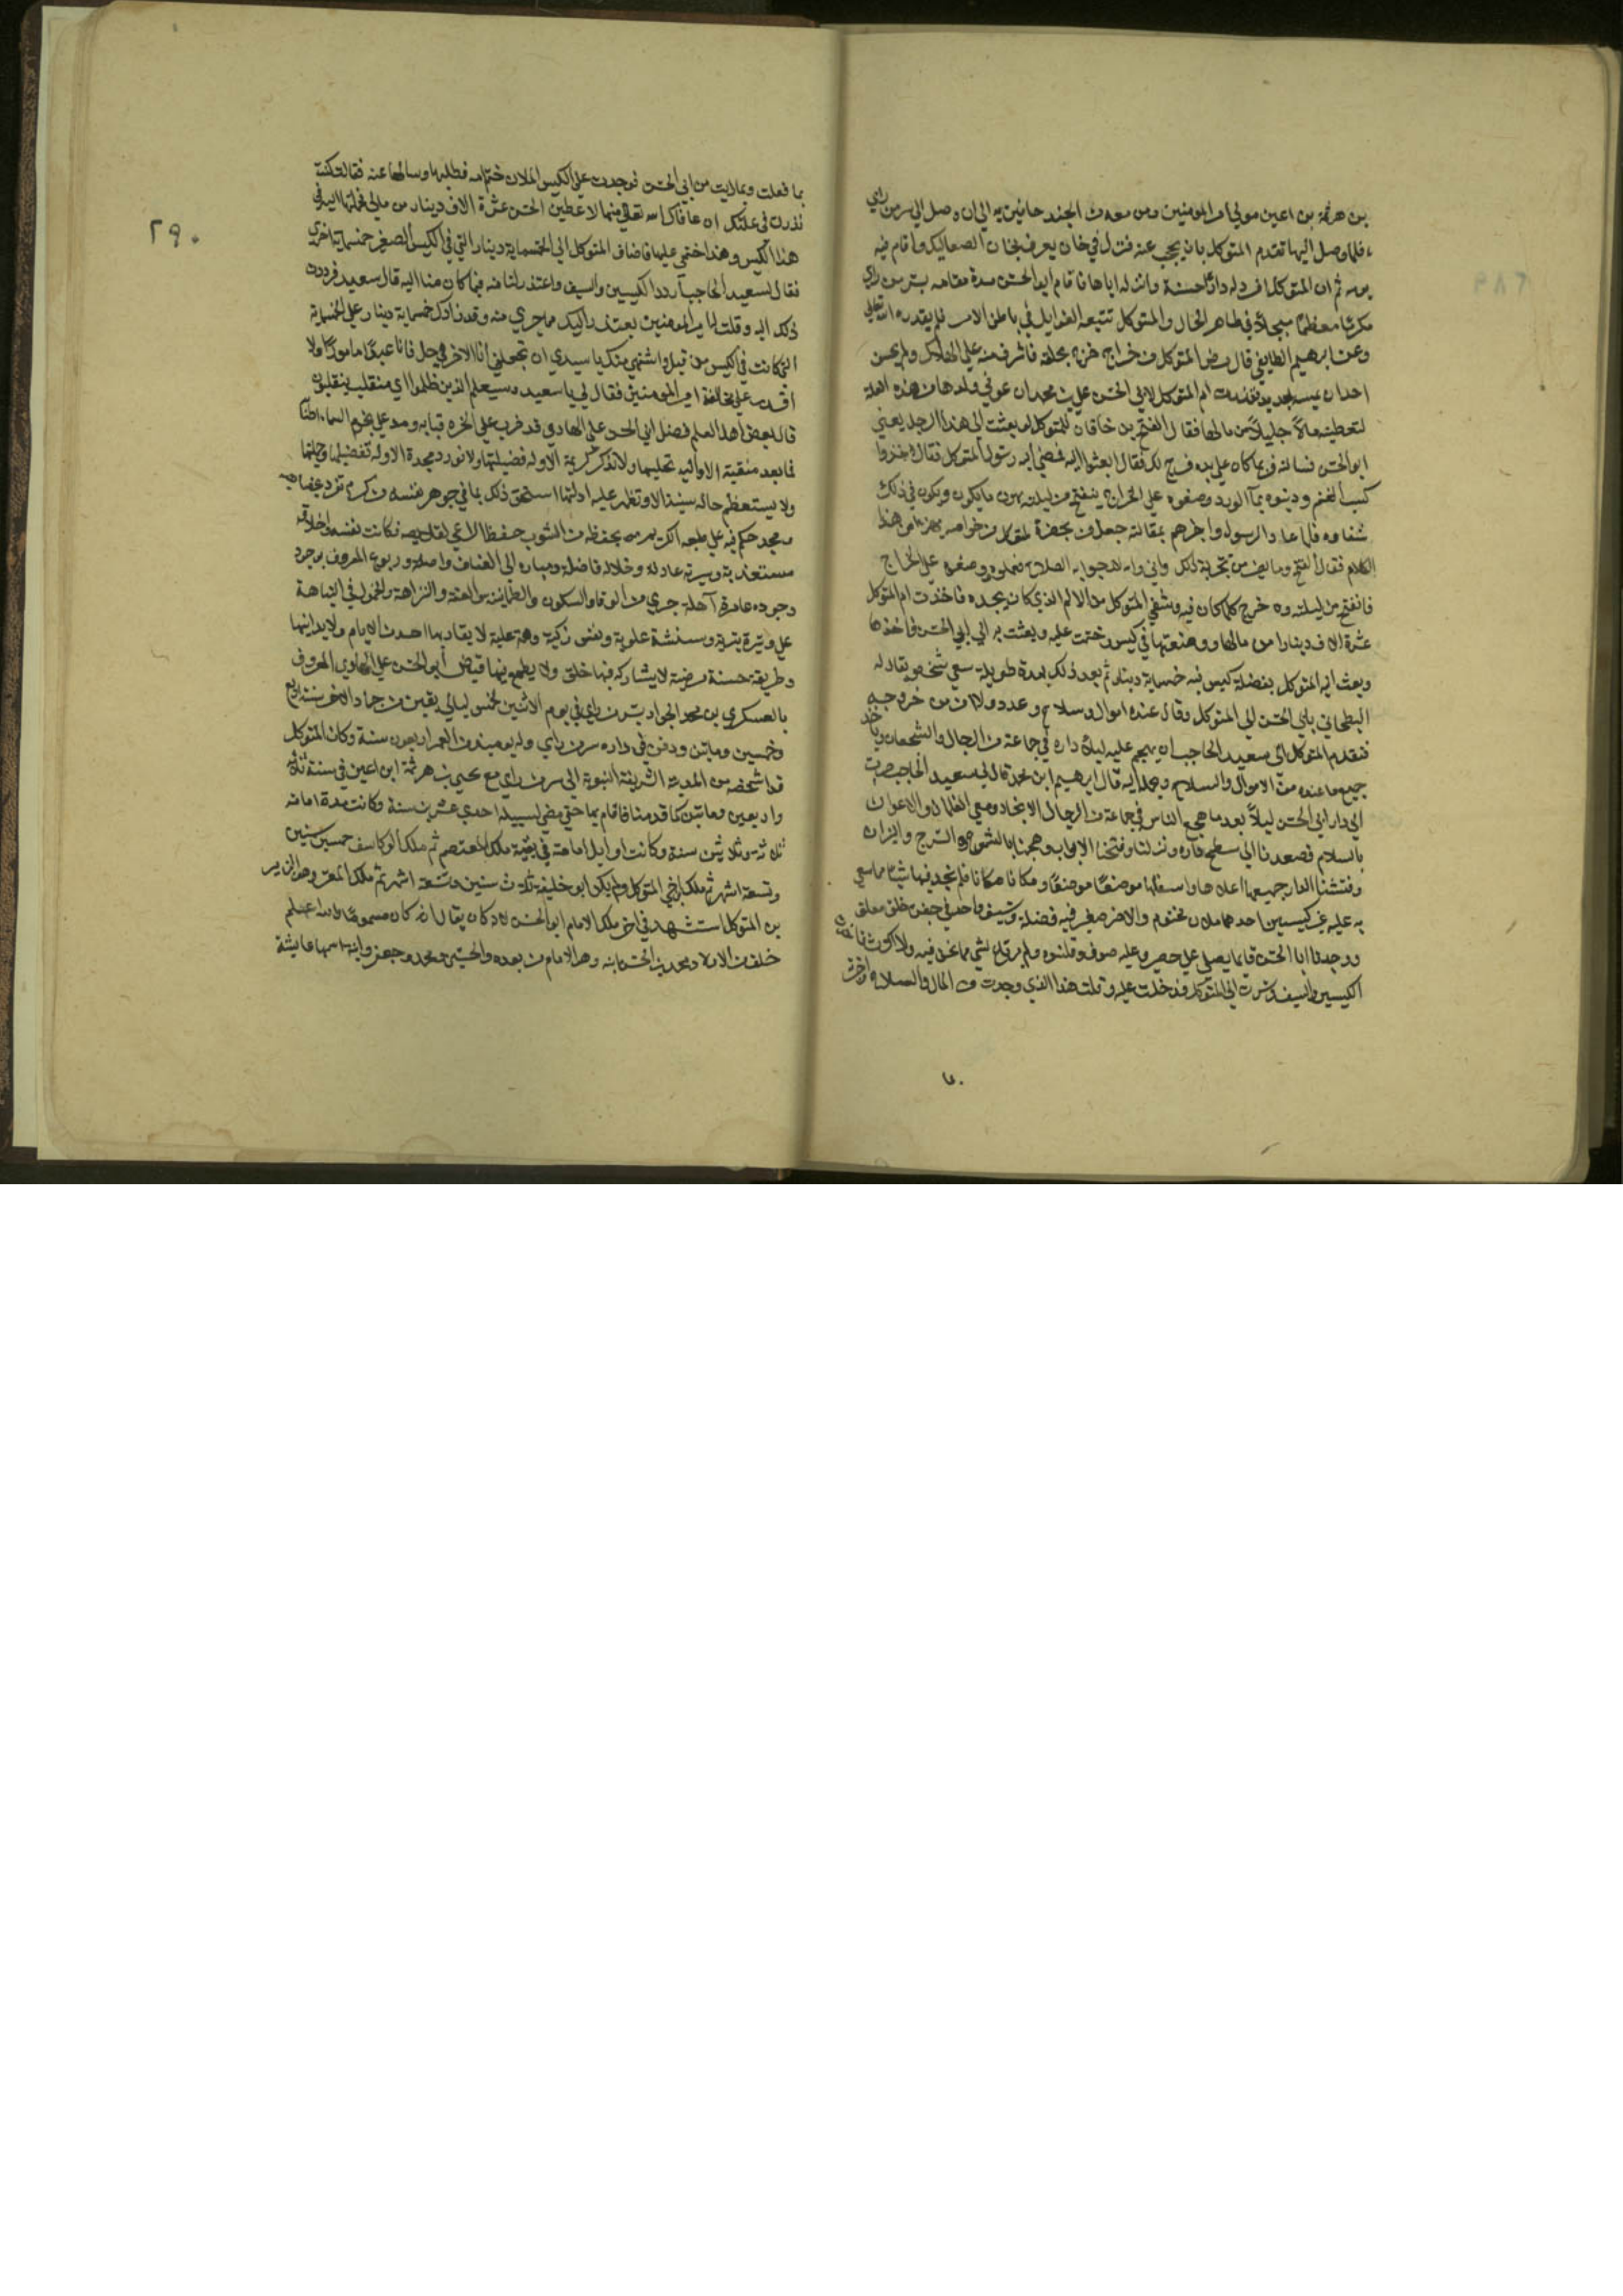 بن هرثمة بن اعين مولي امير المومنين ومن معه من الجند حافين به الي ان وصل الي سر من راي
فلما وصل اليها تقدم المتوكل بان يحجب عنه فنزل في خان يعرف بخان الصعاليك واقام فيه
يومه ثم ان المتوكل افرد له دارًا حسنة وانزله اياها فاقام ابو الحسن مدة مقامه بسر من راي
مكرمًا معظمًا مبجلًا في ظاهر الحال والمتوكل تتبعه الغوايل في باطن الامر فلم يقدره الله تعالي
وعن ابرهيم الطايفي قال مرض المتوكل من خراج خرج بحلقه فاشرف منه علي الهلاك ولم يحسن
احد ان يمسه بحديد فنذرت ام المتوكل لابي الحسن علي بن محمد ان عوفي ولدها من هذه العلة
لتعطينه مالًا جليلًا من مالها فقال الفتح بن خاقان للمتوكل لو بعثت الي هذا الرجل يعني
ابو الحسن فسالته فربما كان علي يده فرج لك فقال ابعثوا اليه فمضي اليه رسول المتوكل فقال خذوا
كسب الغنم وديفوه بمآ الورد وضعوه علي الخراج ينفتح من ليلته باهون ما يكون ويكون في ذلك
شفاوه فلما عاد الرسول واخبرهم بمقالته جعل من بحضرة المتوكل من خواصه يهزا من هذا
الكلام فقال الفتح وما يضر من تجربة ذلك واني والله لارجو به الصلاح فعملوه ووضعوه علي الخراج
فانفتح من ليلته وخرج كلما كان فيه وشفي المتوكل من الالم الذي كان يجده فاخذت ام المتوكل
عشرة الاف دينارا من مالها ووضعتها في كيس وختمت عليه وبعثت به الي ابي الحسن فاخذها
وبعث اليه المتوكل بفضلة كيس فيه خمسماية دينار ثم بعد ذلك بمدة طويلة سعي شخص يقال له
البطحاني بابي الحسن الي المتوكل وقال عنده اموال وسلاح وعدد ولا امن من خروجه
فتقدم المتوكل الي سعيد الحاجب بان يهجم عليه ليلًا داره في جماعة من الرجال والشجعان وياخذ
جميع ما عنده من الاموال والسلاح ويحمله اليه قال ابرهيم ابن محمد قال لي سعيد الحاجب صرت
الي دار ابي الحسن ليلًا بعد ما هجع الناس في جماعة من الرجال الانجاد ومعي الغلمان والاعوان
بالسلالم فصعدنا الي سطح داره ونزلنا وفتحنا الابواب وهجمنا بالشموع والسرج والنيران
وفتشنا الدار جميعها اعلاها واسفلها موضعًا موضعًا ومكانا مكانا فلم نجد فيها شيئا مما سعي
به عليه غير كيسين احدهما ملان مختوم والاخر صغير فيه فضلة وسيف واحد في جفن خلق معلق
ووجدنا ابا الحسن قايما يصلي علي حصير وعليه صوف وقلنسوه ولم يرتاع لشي مما نحن فيه ولا اكترث فاخذت
الكيسين والسيف وسرت الي المتوكل فدخلت عليه وقلت هذا الذي وجدت من المال والسلاح واخبرته
٢٩٠
بما فعلت وبما رايت من ابي الحسن فوجدت علي الكيس الملان ختم امه فطلبها وسالها عنه فقالت كنت
نذرت في علتك ان عافاك الله تعالي منها لاعطين ابا الحسن عشرة الاف دينار من مالي فحملتها اليه في
هذا الكيس وهذا ختمي عليها فاضاف المتوكل الي الخمسماية دينار التي في الكيس الصغير خمسماية اخري
فقال لسعيد الحاجب اردد الكيسين والسيف واعتذر لنا منه فيما كان منا اليه قال سعيد فرددت
ذلك اليه وقلت له امير المومنين يعتذر اليك مما جري منه وقد زادك خمسماية دينار علي الخمسماية
التي كانت في الكيس من قبل واشتهي منك يا سيدي ان تجعلني انا الاخر في حل فانا عبدًا مامورًا ولا
اقدر علي مخالفة امير المومنين فقال لي يا سعيد وسيعلم الذين ظلموا اي منقلب ينقلبون
قال بعض اهل العلم فضل ابي الحسن علي الهادي قد ضرب علي المجره قبابه ومد علي نجوم السماء اطنا
فما يعد منقبة الا واليه تحليها ولا تذكر كريمة الا وله فضيلتها ولا تورد محمدة الا وله تفضيلها وجملتها
ولا يستعظم حاله سنية الا وتظهر عليه ادلتها استحق ذلك بما في جوهر نفسه من كرم تفرد بخصايصه
ومجد حكم فيه علي طبعه الكريم بحفظه من الشوب حفظ الراعي لقلايصه فكانت نفسه واخلاقه
مستعذبة وسيرته عادله وخلاله فاضلة ومباره الي العفاف واصلة وربوع المعروف بوجود
وجوده عامرة آهلة جري من الوقار والسكون والطمانينة والعفة والنزاهة والخمول في النباهة
علي وتيرة نبوية وسنشنة علوية ونفس زكية وهمة علية لا يقاربها احد من الانام ولا يدانيها
وطريقة حسنة مرضية لا يشاركه فيها خلق ولا يطمع فيها قبض ابو الحسن علي الهادي المعروف
بالعسكري بن محمد الجواد بسر من راي في يوم الاثنين لخمس ليالي بقين من جماد الاخر سنة اربع
وخمسين وماتين ودفن في داره بسر من راي وله يوميذ من العمر اربعون سنة وكان المتوكل
قد اشخصه من المدينة الشريفة النبوية الي سر من راي مع يحيي بن هرثمة ابن اعين في سنة ثلاثة
واربعين وماتين كما قدمنا فاقام بها حتي مضي لسبيله احدي عشرين سنة وكانت مدة امامته
ثلاثة وثلاثين سنة وكانت اوايل امامته في بقية ملك المعتصم ثم ملك الواثق خمس سنين
وتسعة اشهر ثم ملك اخي المتوكل ابو خليفة ثلاث سنين وتسعة اشهر ثم ملك المعتز وهو الزبير
بن المتوكل استشهد في اخر ملكه الامام ابو الحسن لانه كان يقال انه كان مسمومًا والله اعلم
خلف من الاولاد محمد الحسن ابنه وهو الامام من بعده والحسين ومحمد وجعفر وابنة اسمها عايشة